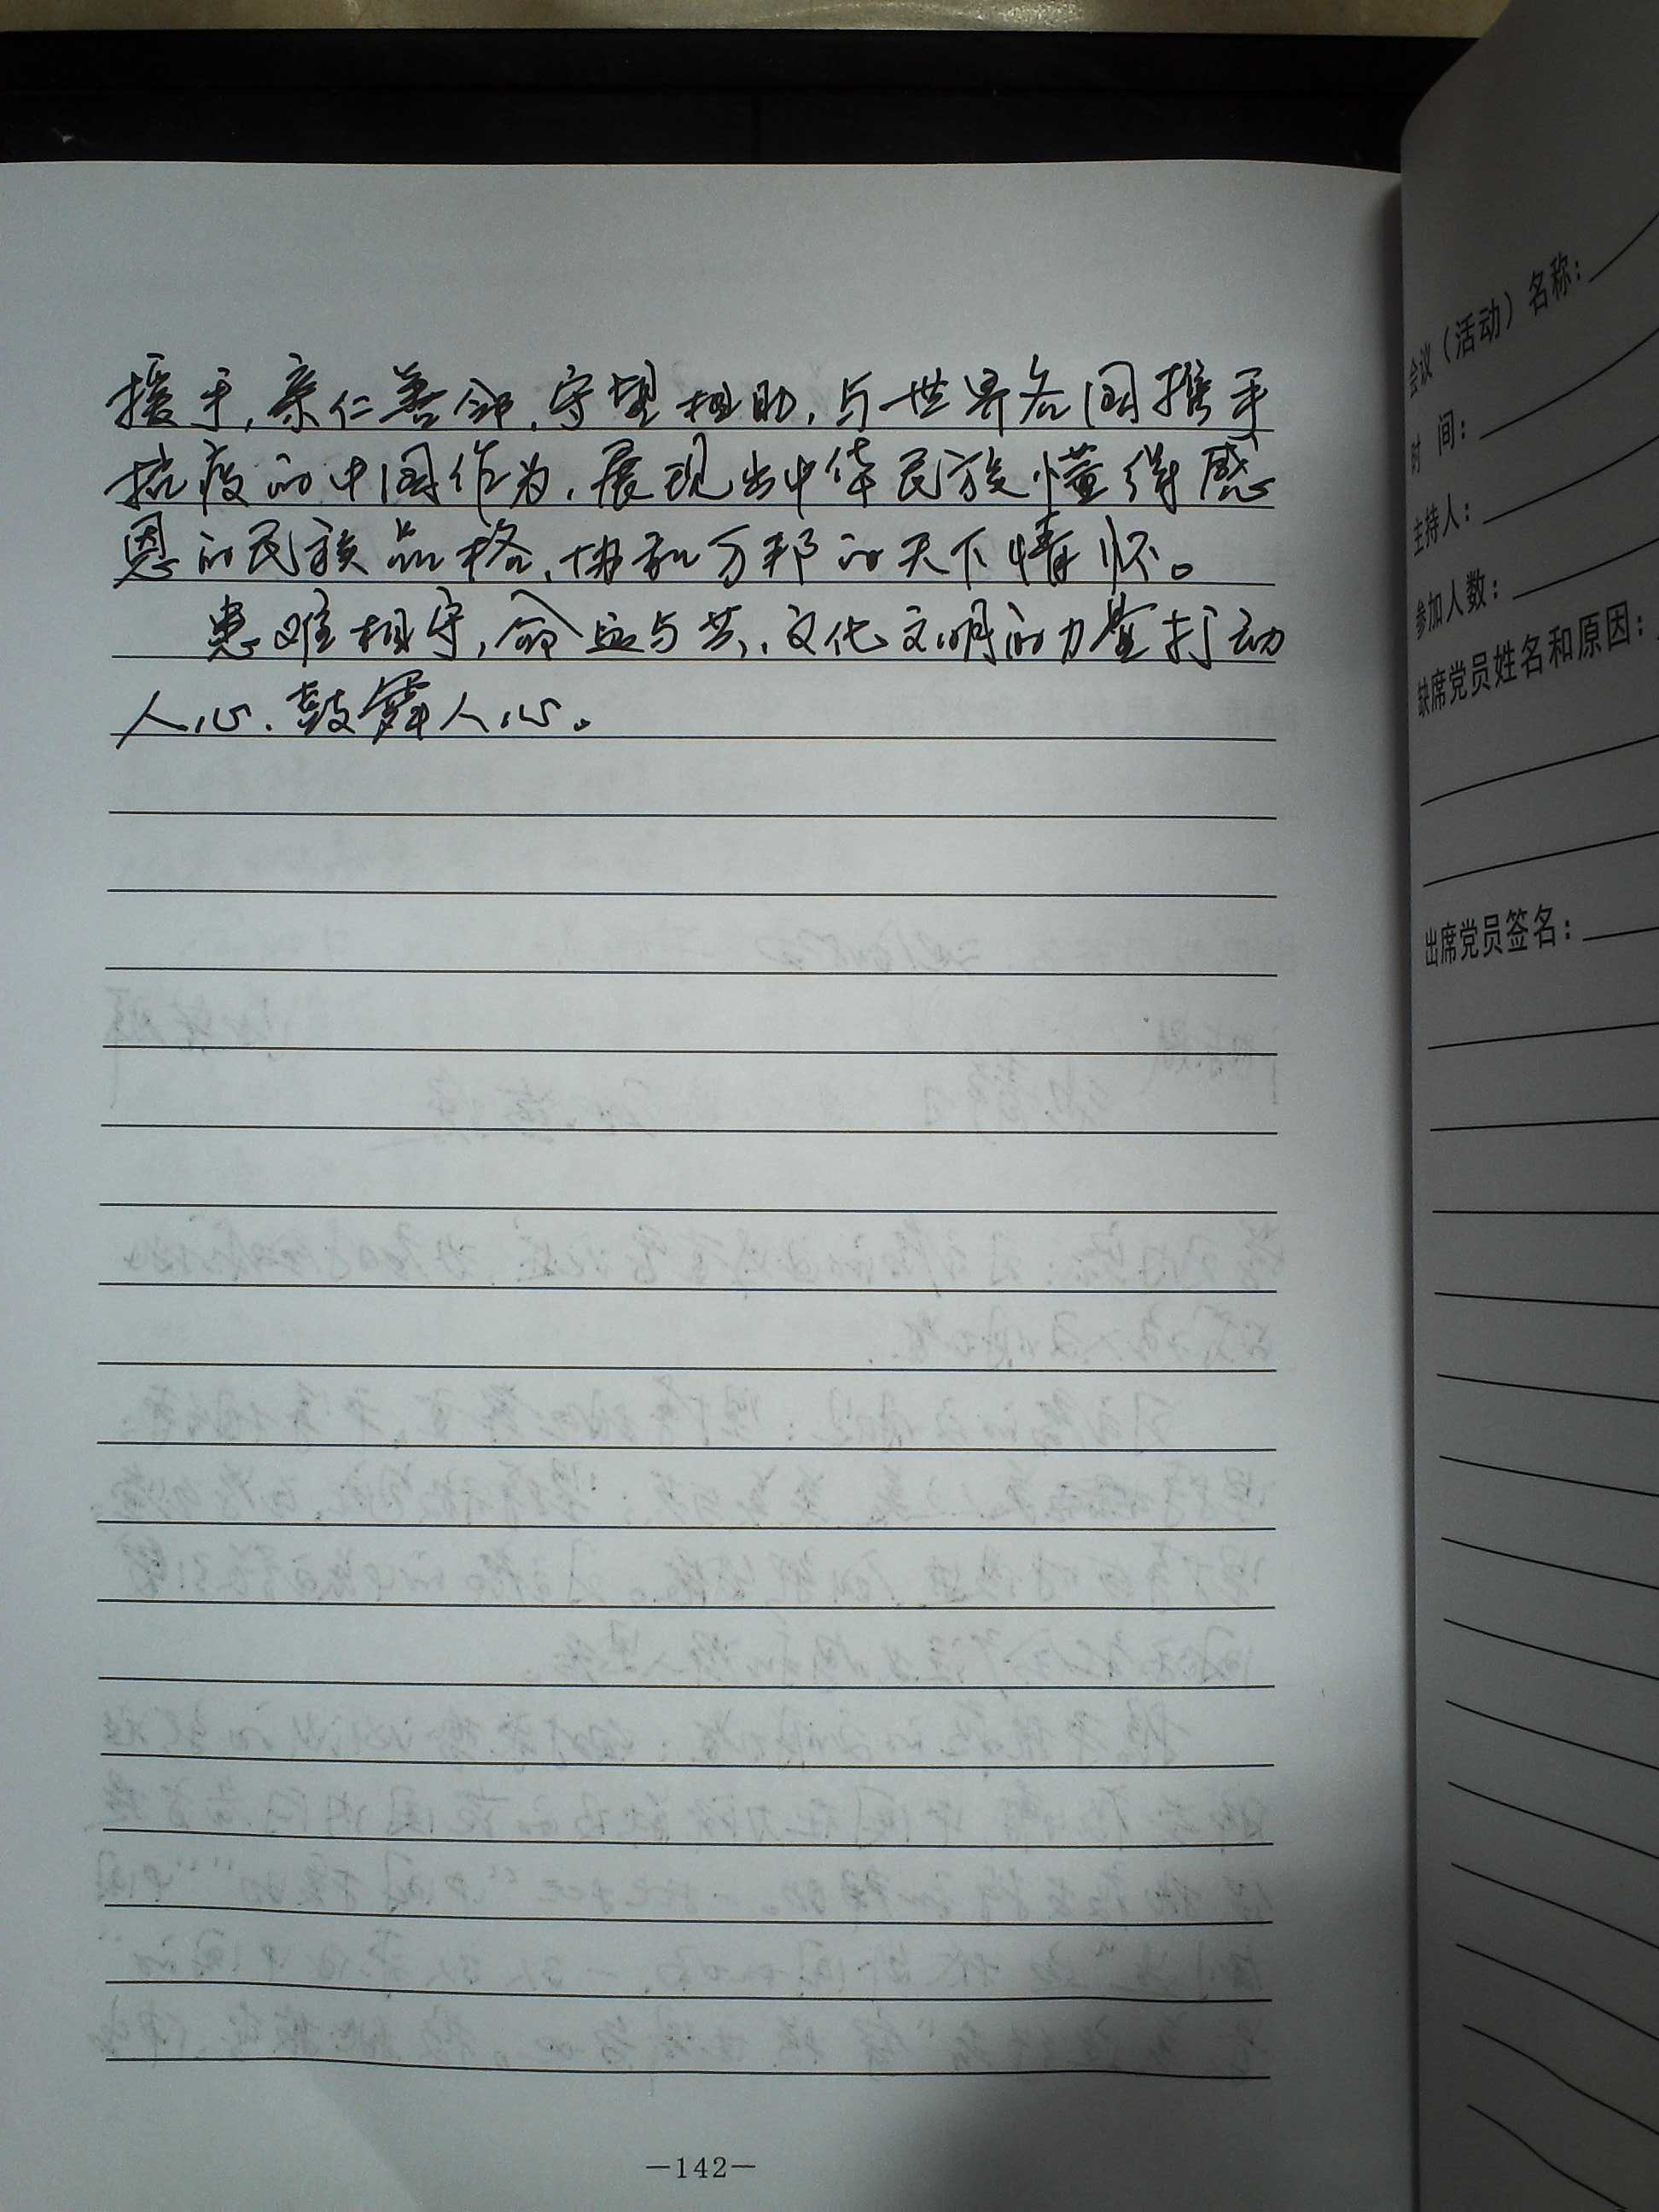 援手,亲仁善邻,守望相助,与世界各国携手
抗疫的中国作为,展现出中华民族懂得感
恩的民族品格,协和万邦的天下情怀。
患难相守,命运与共,文化文明的力量打动
人心,鼓舞人心。
—142—
会议（活动）名称：
时 间：
主持人：
参加人数：
缺席党员姓名和原因：
出席党员签名：